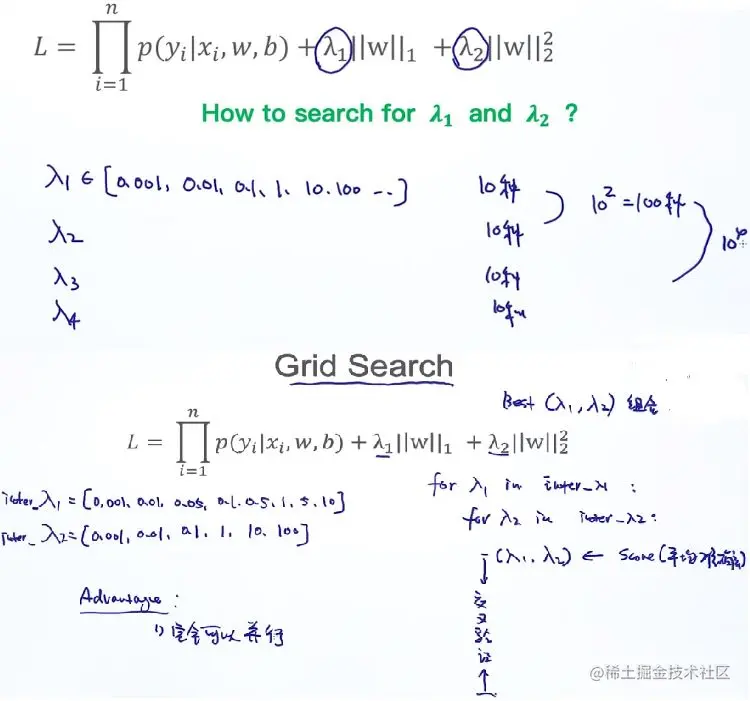 L = ∏_{i=1}^{n} p(y_i|x_i, w, b) + λ_1||w||_1 + λ_2||w||_2^2
How to search for λ_1 and λ_2 ?
λ_1 ∈ [0.001, 0.01, 0.1, 1, 10. 100 ...] 10种
10^2 = 100种
λ_2 10种
10^4
λ_3 10种
λ_4 10种
Grid Search
Best (λ_1, λ_2) 组合
L = ∏_{i=1}^{n} p(y_i|x_i, w, b) + λ_1||w||_1 + λ_2||w||_2^2
_λ_1 = [0.001, 0.01, 0.05, 0.1. 0.5, 1, 5, 10]
_λ_2 = [0.001, 0.01, 0.1, 1, 10, 100]
for λ_1 in _λ_1 :
for λ_2 in _λ_2 :
- (λ_1, λ_2) ← Score (平均准确率)
交叉验证
Advantage :
1) 完全可以并行
@稀土掘金技术社区